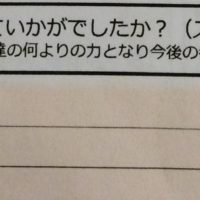 ていかがでしたか？（
達の何よりの力となり今後の